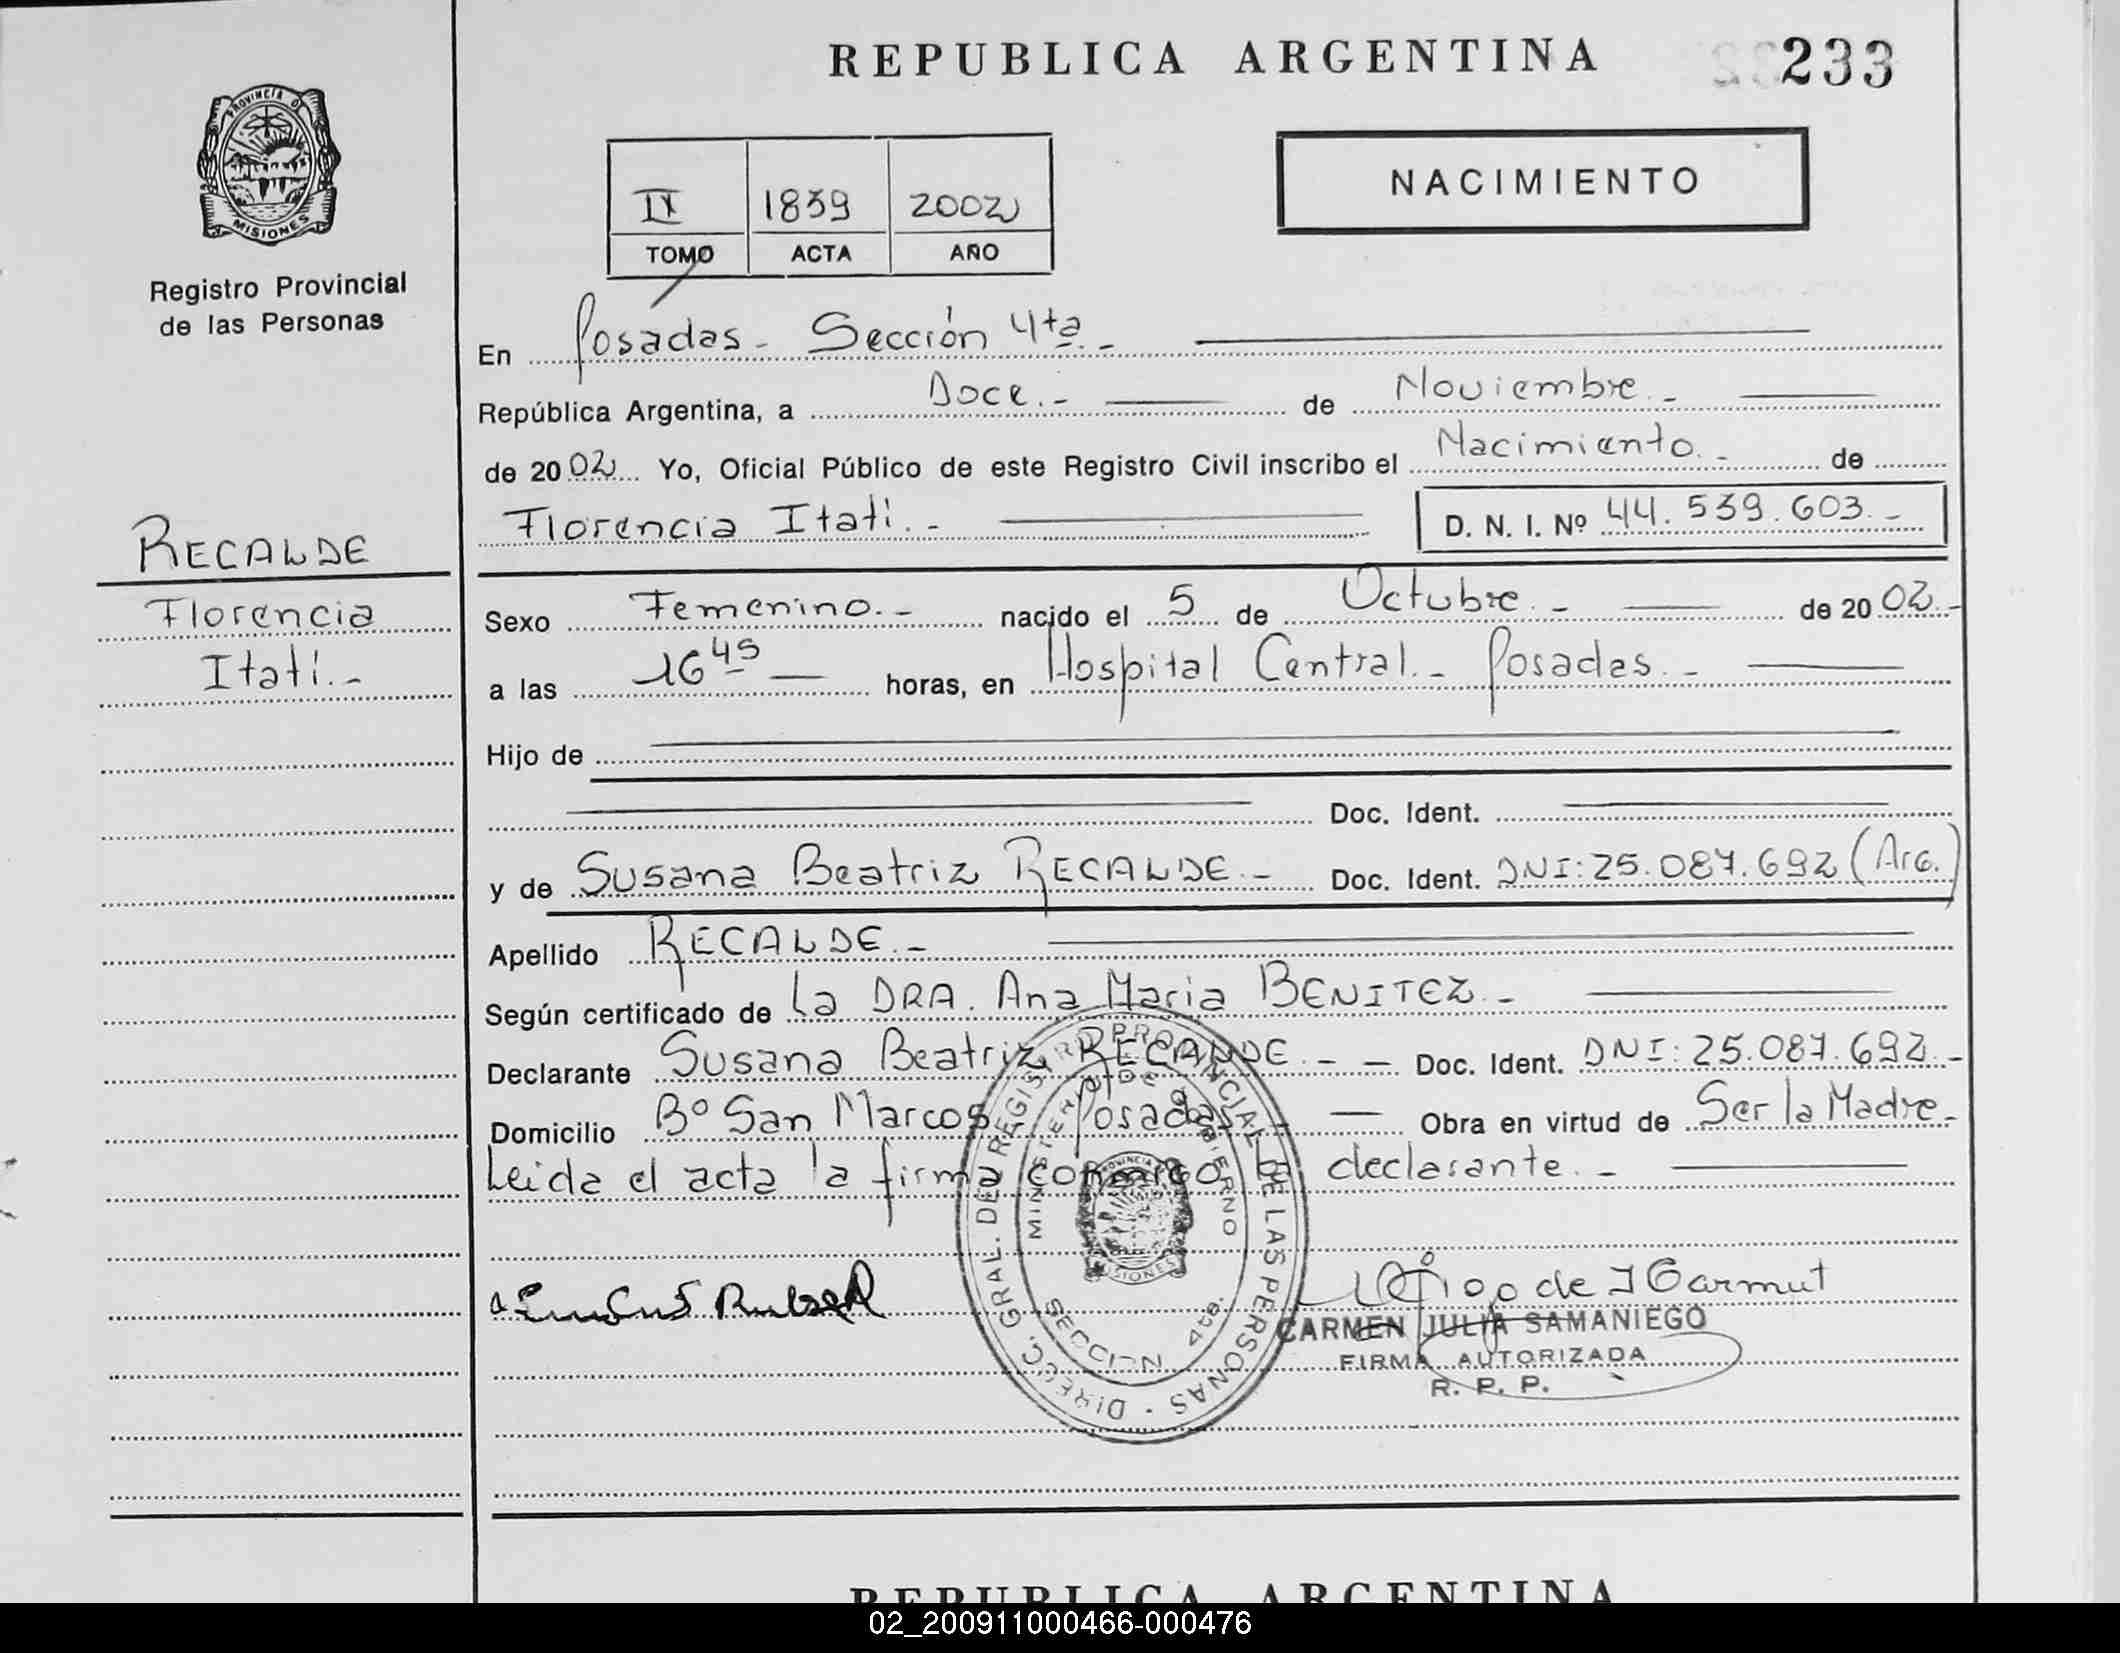 REPUBLICA ARGENTINA 233
PROVINCIA D
MISIONES
Registro Provincial
de las Personas
1839 2002
TOMO ACTA AÑO
NACIMIENTO
En Posadas - Sección 4ta.-
República Argentina, a Doce.- de Noviembre.-
de 2002 Yo, Oficial Público de este Registro Civil inscribo el Nacimiento.- de
Florencia Itatí.- D. N. I. Nº 44.539.603.-
RECALDE
Florencia
Itatí.-
Sexo Femenino.- nacido el 5 de Octubre.- de 2002.-
a las 16 45 horas, en Hospital Central.- Posadas.-
Hijo de
Doc. Ident.
y de Susana Beatriz RECALDE.- Doc. Ident. DNI: 25.087.692 (Arg.)
Apellido RECALDE.-
Según certificado de la DRA. Ana Maria BENITEZ.-
Declarante Susana Beatriz RECALDE.- - Doc. Ident. DNI: 25.087.692.-
Domicilio Bº San Marcos, Posadas.- Obra en virtud de Ser la Madre.-
Leida el acta la firma conmigo la declarante.-
DIRECC. GRAL. DEL REGISTRO PROVINCIAL DE LAS PERSONAS -
MINISTERIO DE GOBIERNO
PROVINCIA
MISIONES
SECCION 4ta.
CARMEN JULIA SAMANIEGO
FIRMA AUTORIZADA
R. P. P.
REPUBLICA ARGENTINA
02_200911000466-000476